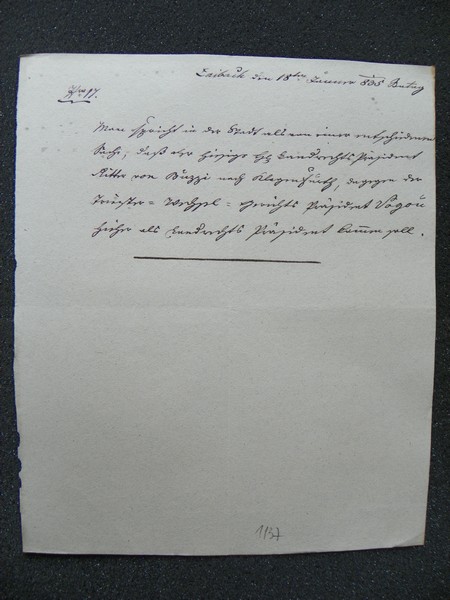 Laibach den 18ten Jänner 835
Nro 17.
Man spricht in der Stadt als von einer entschiedenen
Sache, daß der hiesige Landrechts Präsident
Ritter von Buzzi nach Klagenfurth, dagegen der
Triester = Wechsel = Gerichts Präsident
hieher als Landrechts Präsident kommen soll.
1137